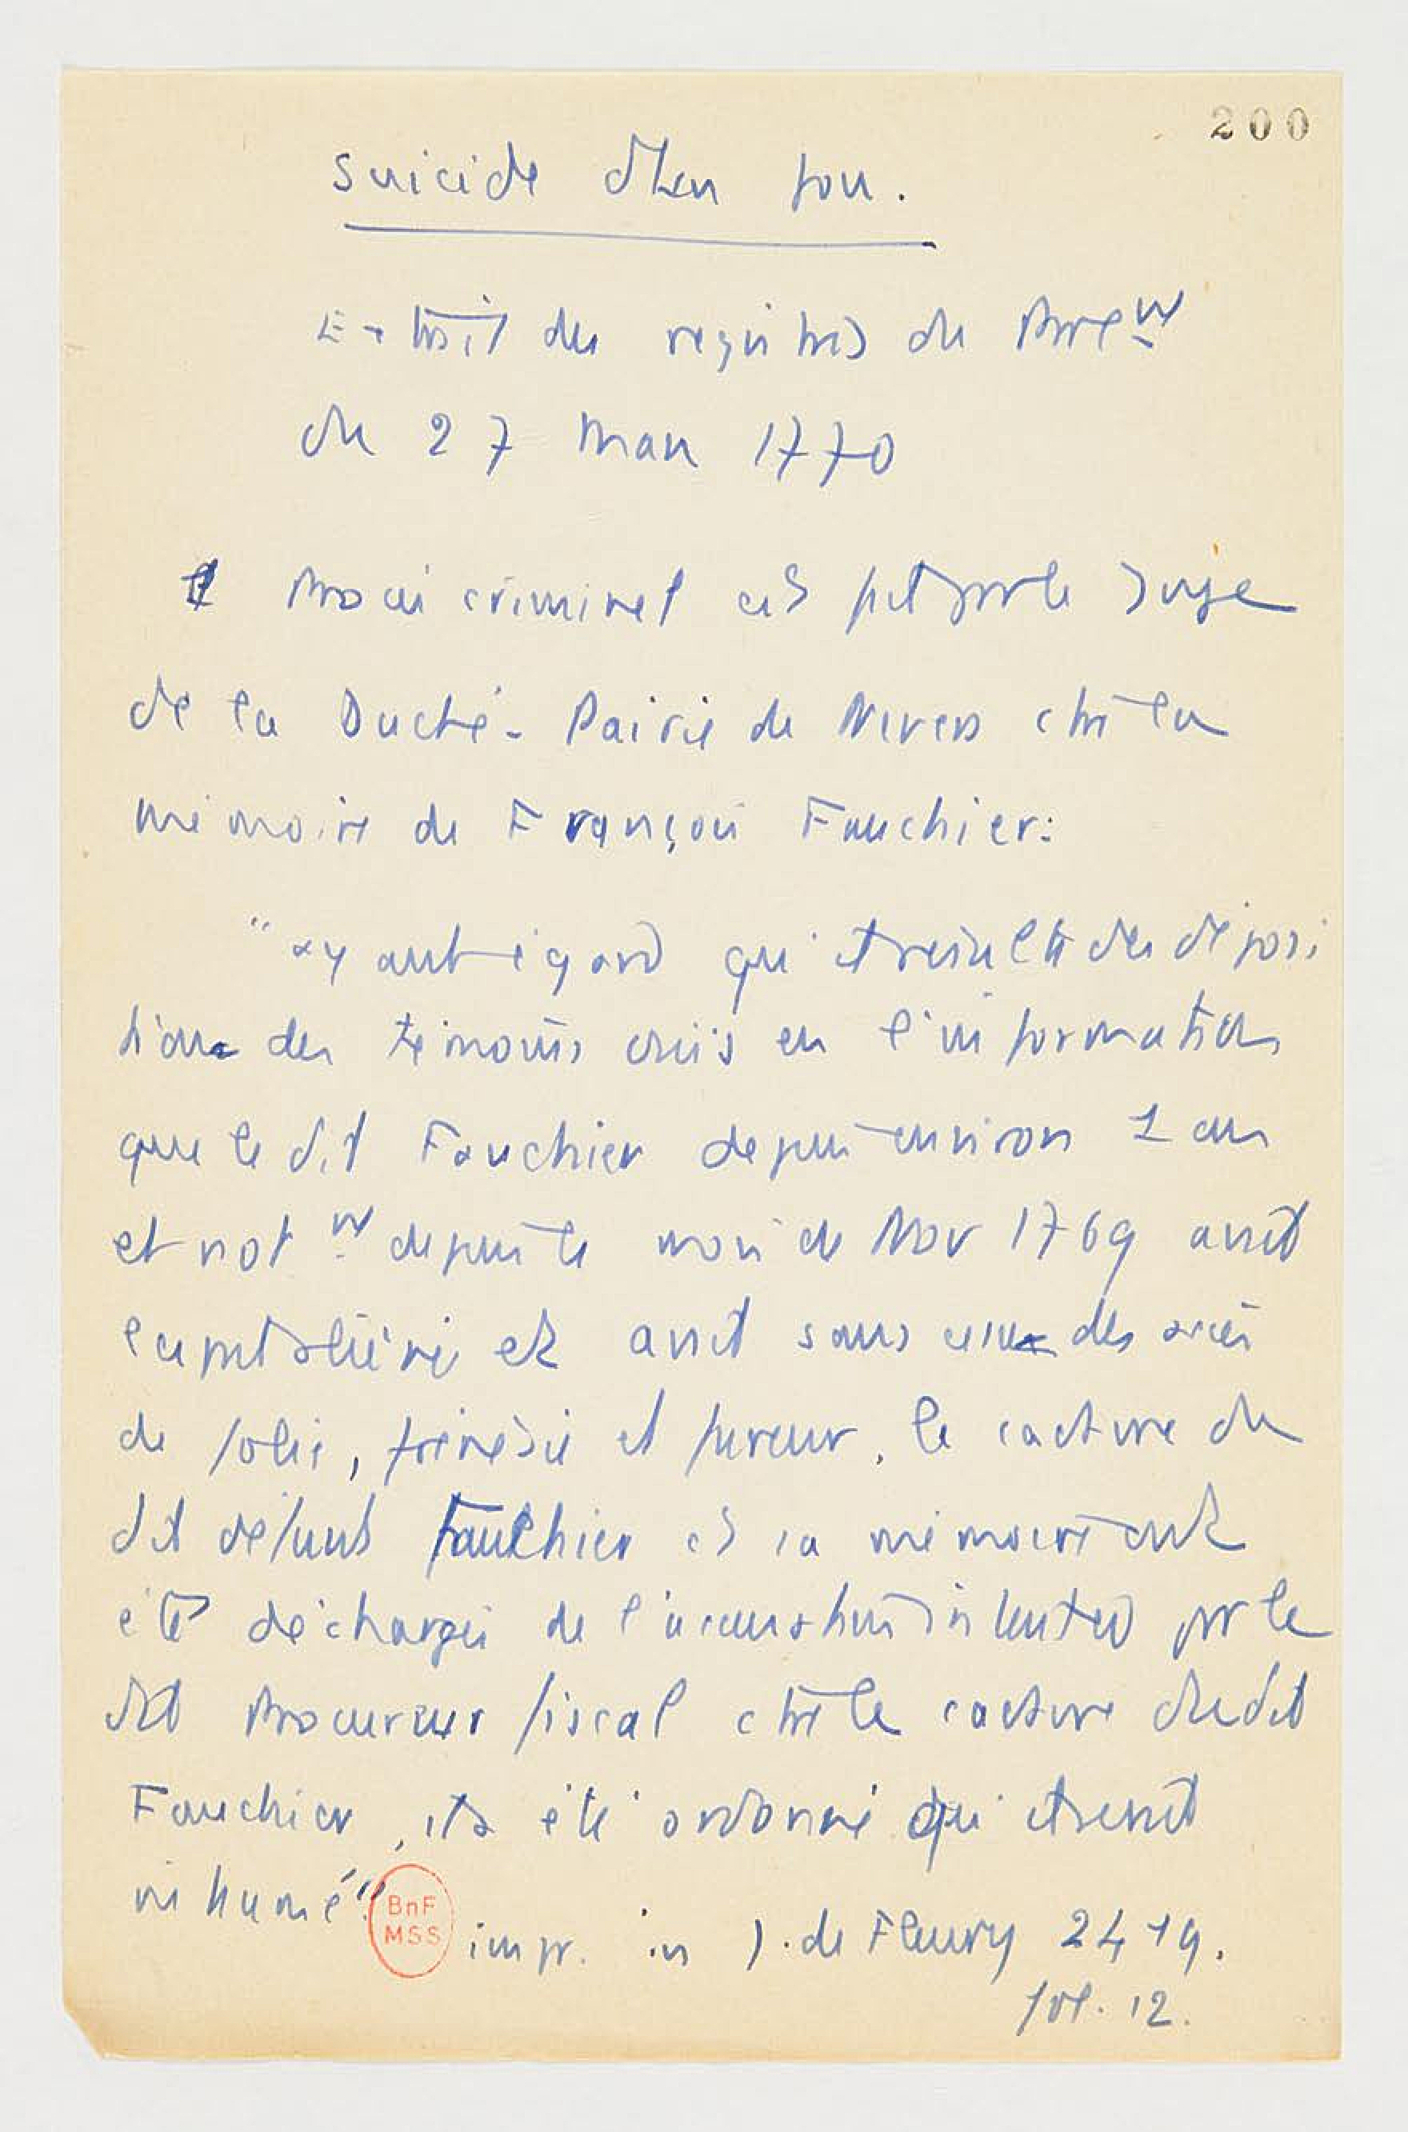 200
Suicide d'un fou.
Extrait des registres du Parl nt
du 27 mars 1770
procès criminel est fait par le Juge
de la Duché-Pairie de Nevers ctre la
mémoire de François Fauchier:
"ayant égard qu'il résulte des déposi
tions des témoins ouis en l'information
que le dit Fauchier depuis environ 1 an
et not nt depuis le mois de Nov 1769 avait
l'esprit aliéné et avait sans cesse des accès
de folie, frénésie et fureur, le cadavre du
dit défunt Fauchier et sa mémoire ont
été déchargés de l'accusation intentée par le
dit Procureur fiscal ctre le cadavre dudit
Fauchier, il a été ordonné qu'il serait
inhumé"
BnF
MSS
impr. in J. de Fleury 2419.
fol. 12.